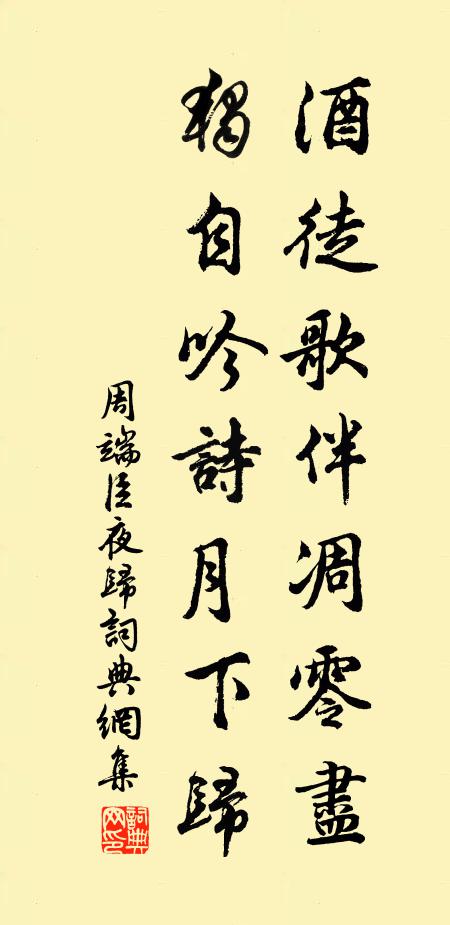 酒徒歌伴凋零盡
獨自吟詩月下歸
周端臣夜歸詞典網集
詞典網印